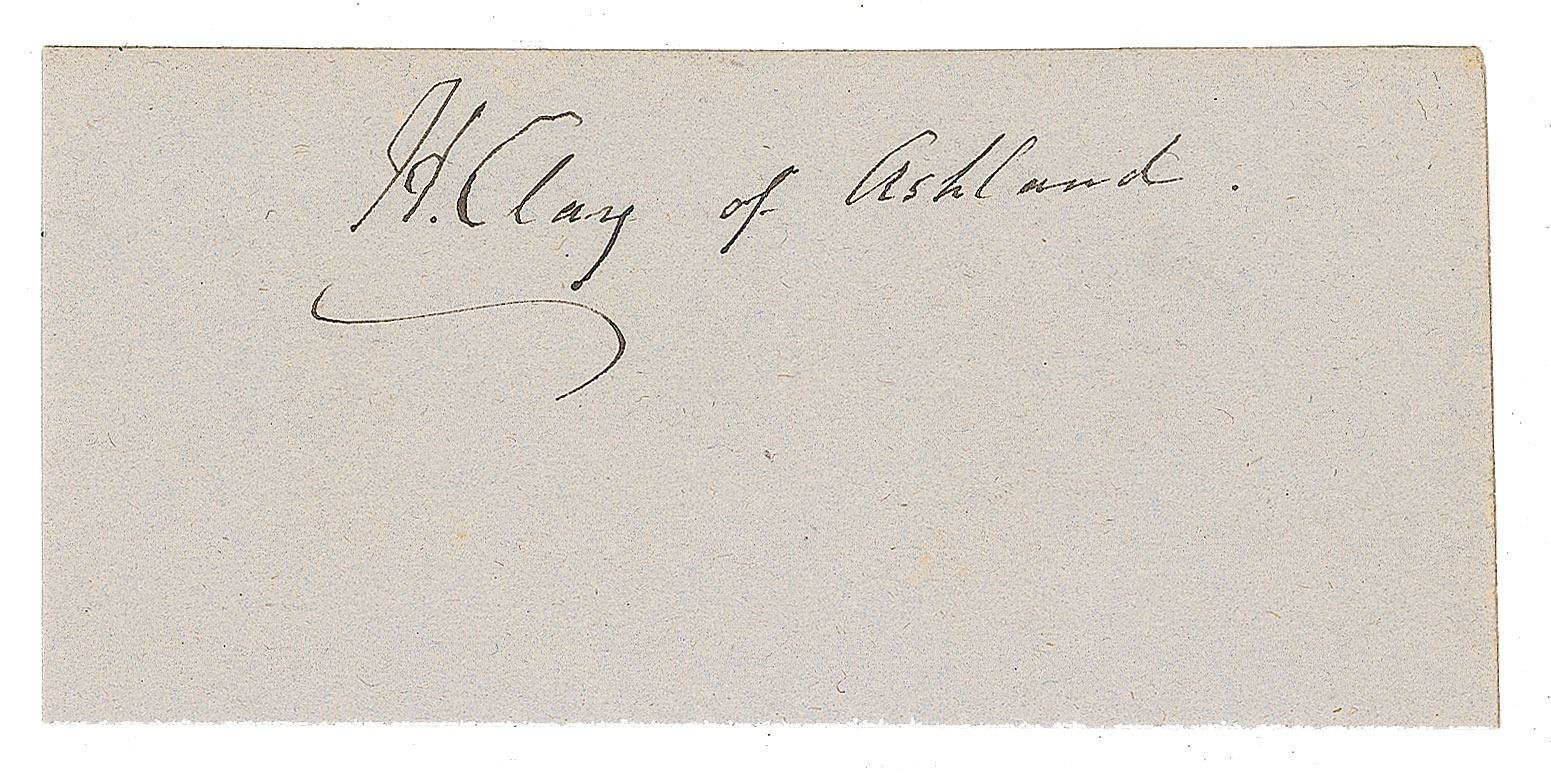 H. Clay of Ashland.